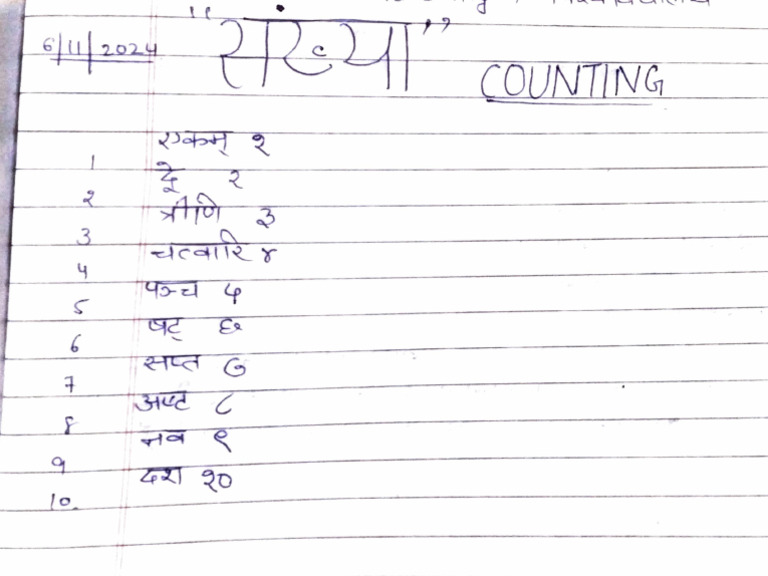 6/11/2024 "संख्या" COUNTING
1 एकम् १
2 द्वे २
3 त्रीणि ३
4 चत्वारि ४
5 पञ्च ५
6 षट् ६
7 सप्त ७
8 अष्ट ८
9 नव ९
10. दश १०